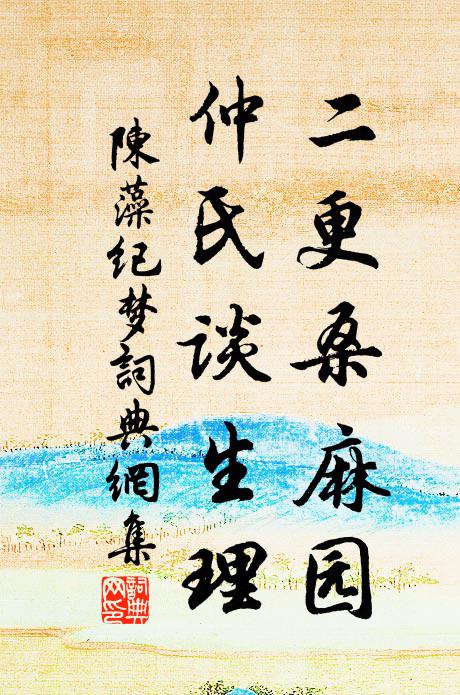 二更桑麻园
仲氏谈生理
陳藻纪梦詞典網集